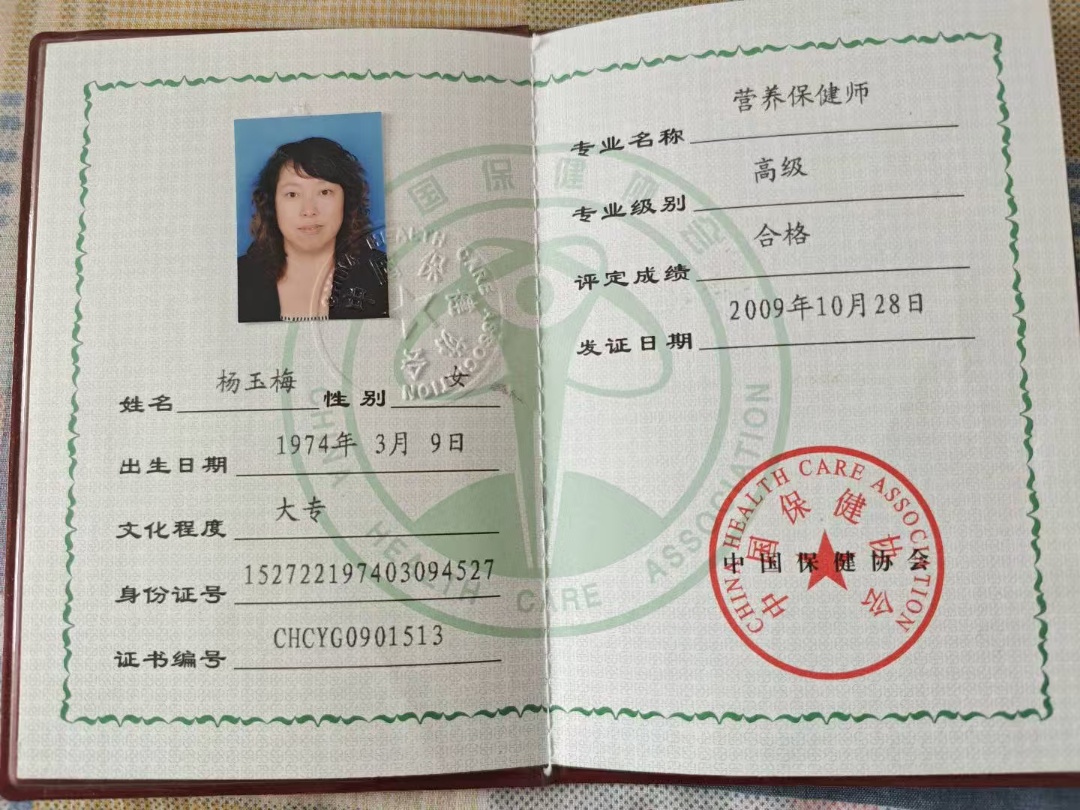 姓名 杨玉梅 性别 女
出生日期 1974年 3月 9日
文化程度 大专
身份证号 152722197403094527
证书编号 CHCYG0901513
专业名称 营养保健师
专业级别 高级
评定成绩 合格
发证日期 2009年10月28日
中国保健协会
CHINA HEALTH CARE ASSOCIATION
中国保健协会
中国保健协会
CHINA HEALTH CARE ASSOCIATION